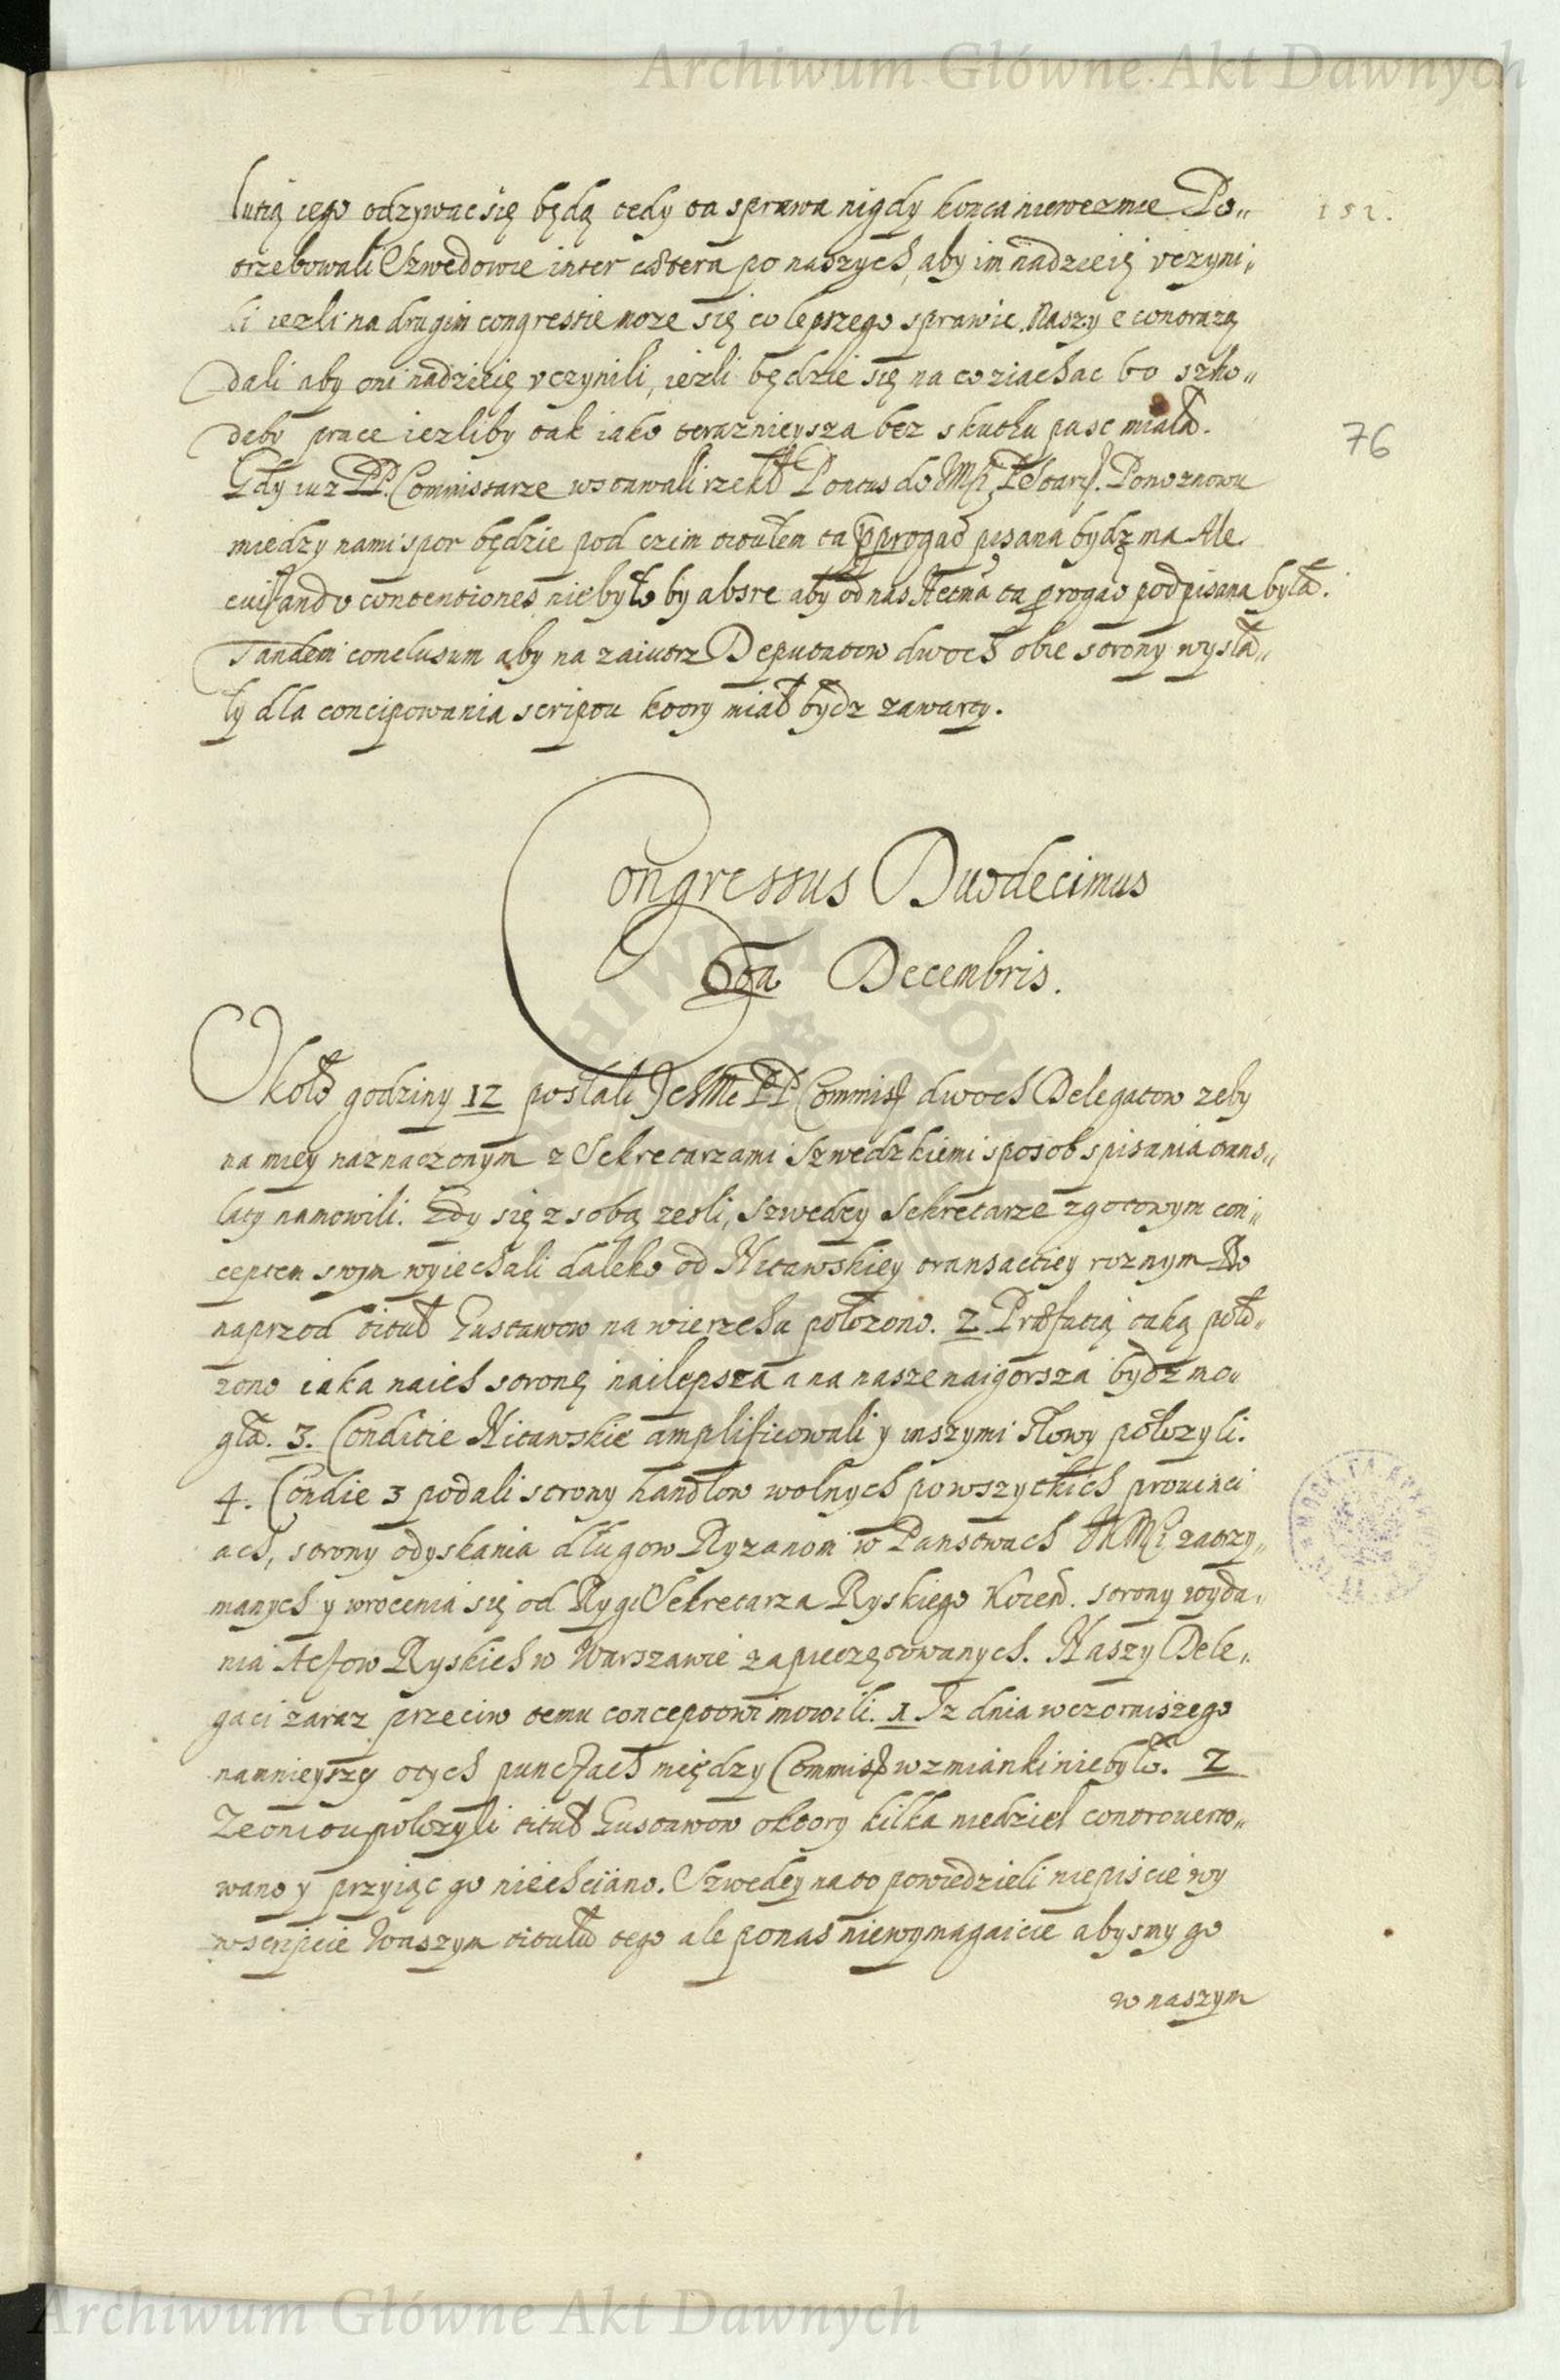 Archiwum Główne Akt Dawnych
lutią iego odzywac się będą tedy ta sprawa nigdy konca niewezmie Po„
151.
trzebowali Szwedowie inter cætera po naszych, aby im nadzieię vczyni„
li iezli na drugim congressie moze się co lepszego sprawic. Naszy e contra zą
dali aby oni nadzieię vczynili, iezli będzie się na co ziachac bo szko„
da by prace iezliby tak iako teraznieysza bez skutku pasc miała.
76
Gdy iuz PP. Commissarze wstawali rzekł Pontus do JMci P. Ponoznowu
miedzy nami spor będzie pod czim titułem ta prorogao pisana bydz ma Ale
euitando contentiones nie było by absre aby od nas Accina ta prorogao podpisana była.
Tandem conclusum aby na zaiutrz Deputatow dwoch obie strony wysła„
ły dla concipowania scriptu ktory miał bydz zawarty.
Congressus Duodecimus
6ta Decembris.
Około godziny 12 posłali Ich Mc PP Commiss dwoch Delegatow zeby
na miey naznaczonym z Sekretarzami Szwedzkiemi sposob spisania trans„
laty namowili. Gdy się z sobą zesli, Szwedzy Sekretarze z gotowym con„
ceptem swym wyiechali daleko od Mitawskiey transactiey roznym Bo
naprzod tituł Gustawow na wierzchu położono. 2 Præfatią taką poło„
zono iaka na ich stronę nailepsza a na nasze naigorsza bydz mo„
gła. 3. Conditie Mitawskie amplificowali y inszymi słowy położyli.
4. Condie 3 podali strony handlow wolnych po wszytkich prouinci
ach, strony odyskania długow Ryzanom w Panstwach JKMci zatrzy„
manych y wrocenia się od Rygi Sekretarza Ryskiego strony wyda„
nia Actow Ryskich w Warszawie zapieczętowanych. Naszy Dele„
gaci zaraz przeciw temu conceptowi mowili. 1 Iz dnia wczorniszego
namnieyszy o tych punctach między Commiss wzmianki nie było. 2
Ze oni tu polozyli tituł Gustawow o ktory kilka niedziel controuerto„
wano y przyiąc go niechciano. Szwedzy na to powiedzieli nie piscie wy
w scripcie Waszym titułu tego ale po nas niewymagaicie abysmy go
w naszym
Archiwum Główne Akt Dawnych